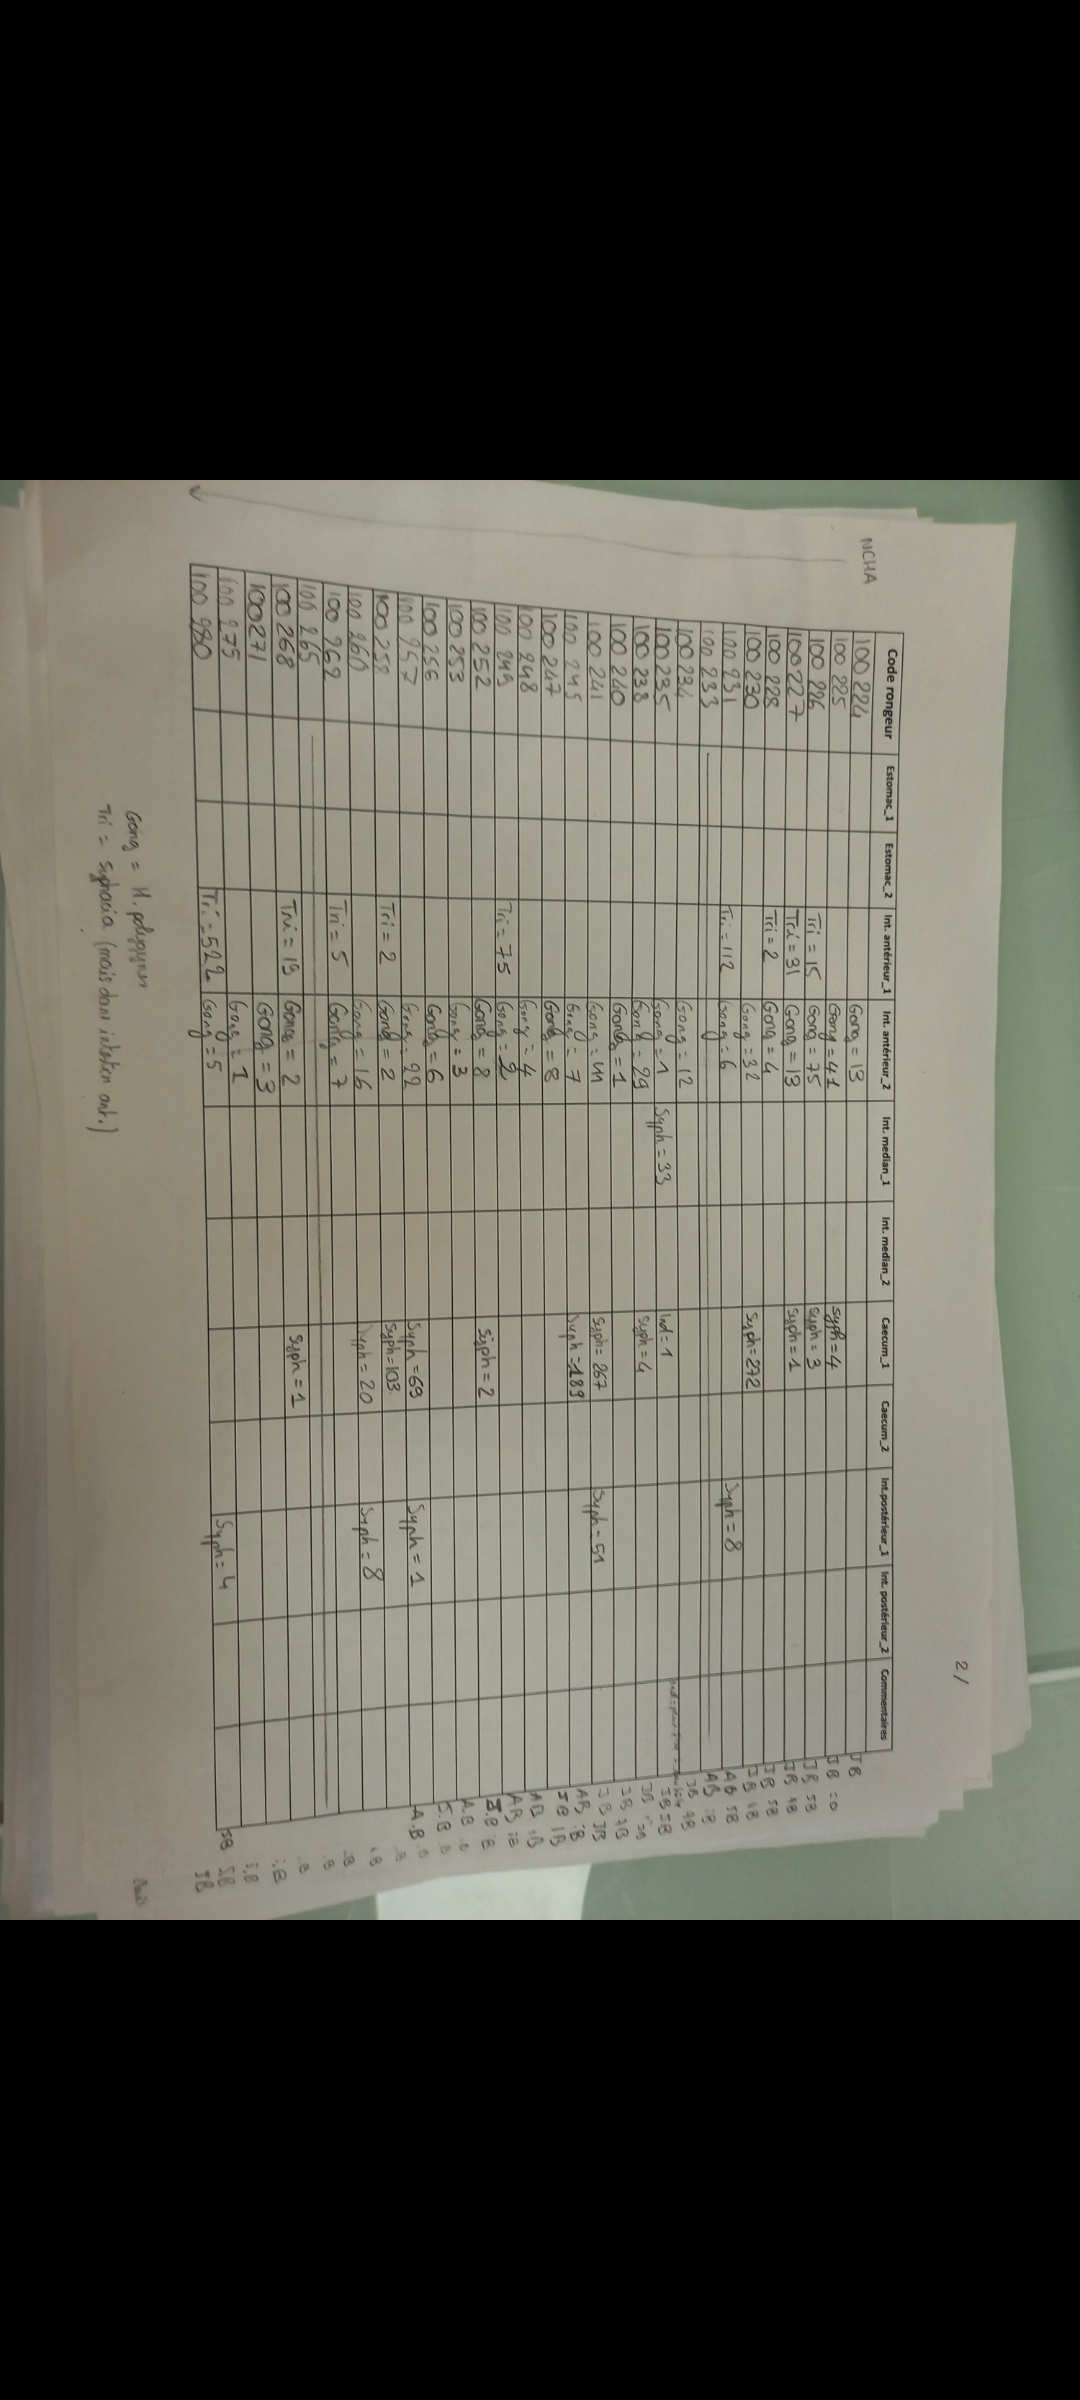 2/
NCHA
Code rongeur Estomac_1 Estomac_2 Int. antérieur_1 Int. antérieur_2 Int. median_1 Int. median_2 Caecum_1 Caecum_2 Int.postérieur_1 Int. postérieur_2 Commentaires
100 224 Gong = 13 JB
100 225 Gong = 41 Syph = 4 JB
100 226 Tri = 15 Gong = 75 Syph = 3 JB
100 227 Tri = 31 Gong = 13 Syph = 1 JB
100 228 Tri = 2 Gong = 4 JB
100 230 Gong = 32 Syph = 272 JB
100 231 Tri = 112 Gong = 6 Syph = 8 AB
100 233 AB
100 234 Gong = 12 JB
100 235 Gong = 1 Syph = 33 Ind = 1 JB
100 238 Gong = 29 Syph = 4 JB
100 240 Gong = 1 JB
100 241 Gong = Syph = 267 Syph = 51 JB
100 245 Gong = 7 Syph = 189 AB
100 247 Gong = 8 JB
100 248 Gong = 4 AB
100 249 Tri = 75 Gong = 2 AB
100 252 Gong = 8 Syph = 2 J.B
100 253 Gong = 3 A.B
100 256 Gong = 6 J.B
100 257 Gong = 22 Syph = 69 Syph = 1 A.B
100 258 Tri = 2 Gong = 2 Syph = 103
100 260 Gong = 16 Syph = 20 Syph = 8
100 262 Tri = 5 Gong = 7
100 265
100 268 Tri = 19 Gong = 2 Syph = 1
100 271 Gong = 3
100 275 Gong = 1
100 280 Tri = 522 Gong = 5 Syph = 4 JB
Gong = H. polygyrus
Tri = Syphacia (mais dans intestin ant.)